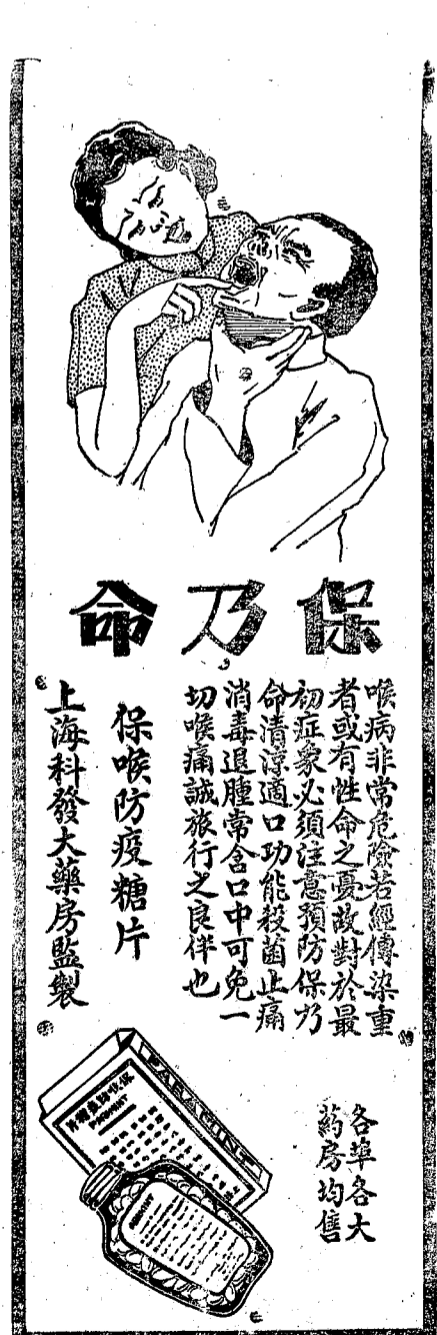 保乃命
喉病非常危險若經傳染重
者或有性命之憂故對於最
初症象必須注意預防保乃
命清涼適口功能殺菌止痛
消毒退腫常含口中可免一
切喉痛誠旅行之良伴也
保喉防疫糖片
上海科發大藥房監製
各埠各大
葯房均售